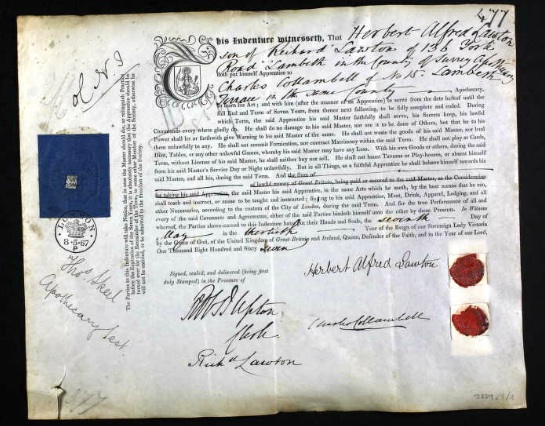 477
This Indenture witnesseth, That Herbert Alfred Lawton
son of Richard Lawton of 136 York
Road Lambeth in the County of Surrey
doth put himself Apprentice to
Charles Collambell of No 15 Lambeth
Terrace in the same County Apothecary,
to learn his Art; and with him (after the manner of an Apprentice) to serve from the date hereof until the
full End and Term of Seven Years, from thence next following, to be fully complete and ended. During
which Term, the said Apprentice his said Master faithfully shall serve, his Secrets keep, his lawful
Commands every where gladly do. He shall do no damage to his said Master, nor see it to be done of Others, but that he to his
Power shall let or forthwith give Warning to his said Master of the same. He shall not waste the goods of his said Master, nor lend
them unlawfully to any. He shall not commit Fornication, nor contract Matrimony within the said Term. He shall not play at Cards,
Dice, Tables, or any other unlawful Games, whereby his said Master may have any Loss. With his own Goods or others, during the said
Term, without license of his said Master, he shall neither buy nor sell. He shall not haunt Taverns or Play-houses, or absent himself
from his said Master's Service Day or Night unlawfully. But in all Things, as a faithful Apprentice he shall behave himself towards his
said Master, and all his, during the said Term. And the Sum of
of lawful money of Great Britain, being paid or secured to the said Master, as the Consideration
for taking his said Apprentice, the said Master his said Apprentice, in the same Arts which he useth, by the best means that he can,
shall teach and instruct, or cause to be taught and instructed; finding to his said Apprentice, Meat, Drink, Apparel, Lodging, and all
other Necessaries, according to the custom of the City of London, during the said Term. And for the true Performance of all and
every of the said Covenants and Agreements, either of the said Parties bindeth himself unto the other by these Presents. In witness
whereof, the Parties above named to this Indenture have put their Hands and Seals, the seventh Day of
May in the thirtieth Year of the Reign of our Sovereign Lady Victoria
by the Grace of God, of the United Kingdom of Great Britain and Ireland, Queen, Defender of the Faith, and in the Year of our Lord,
One Thousand Eight Hundred and Sixty Seven
Signed, sealed, and delivered (being first
duly Stamped) in the Presence of
Herbert Alfred Lawton
Upton
Clerk
Charles Collambell
Richd Lawton
LONDON
8·5·67
Thos
Apothecary